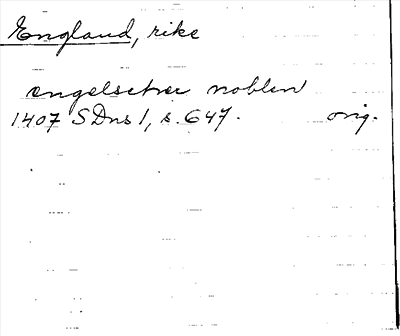 England, rike
engelschee noblen
1407 SDns 1, s. 647. orig.